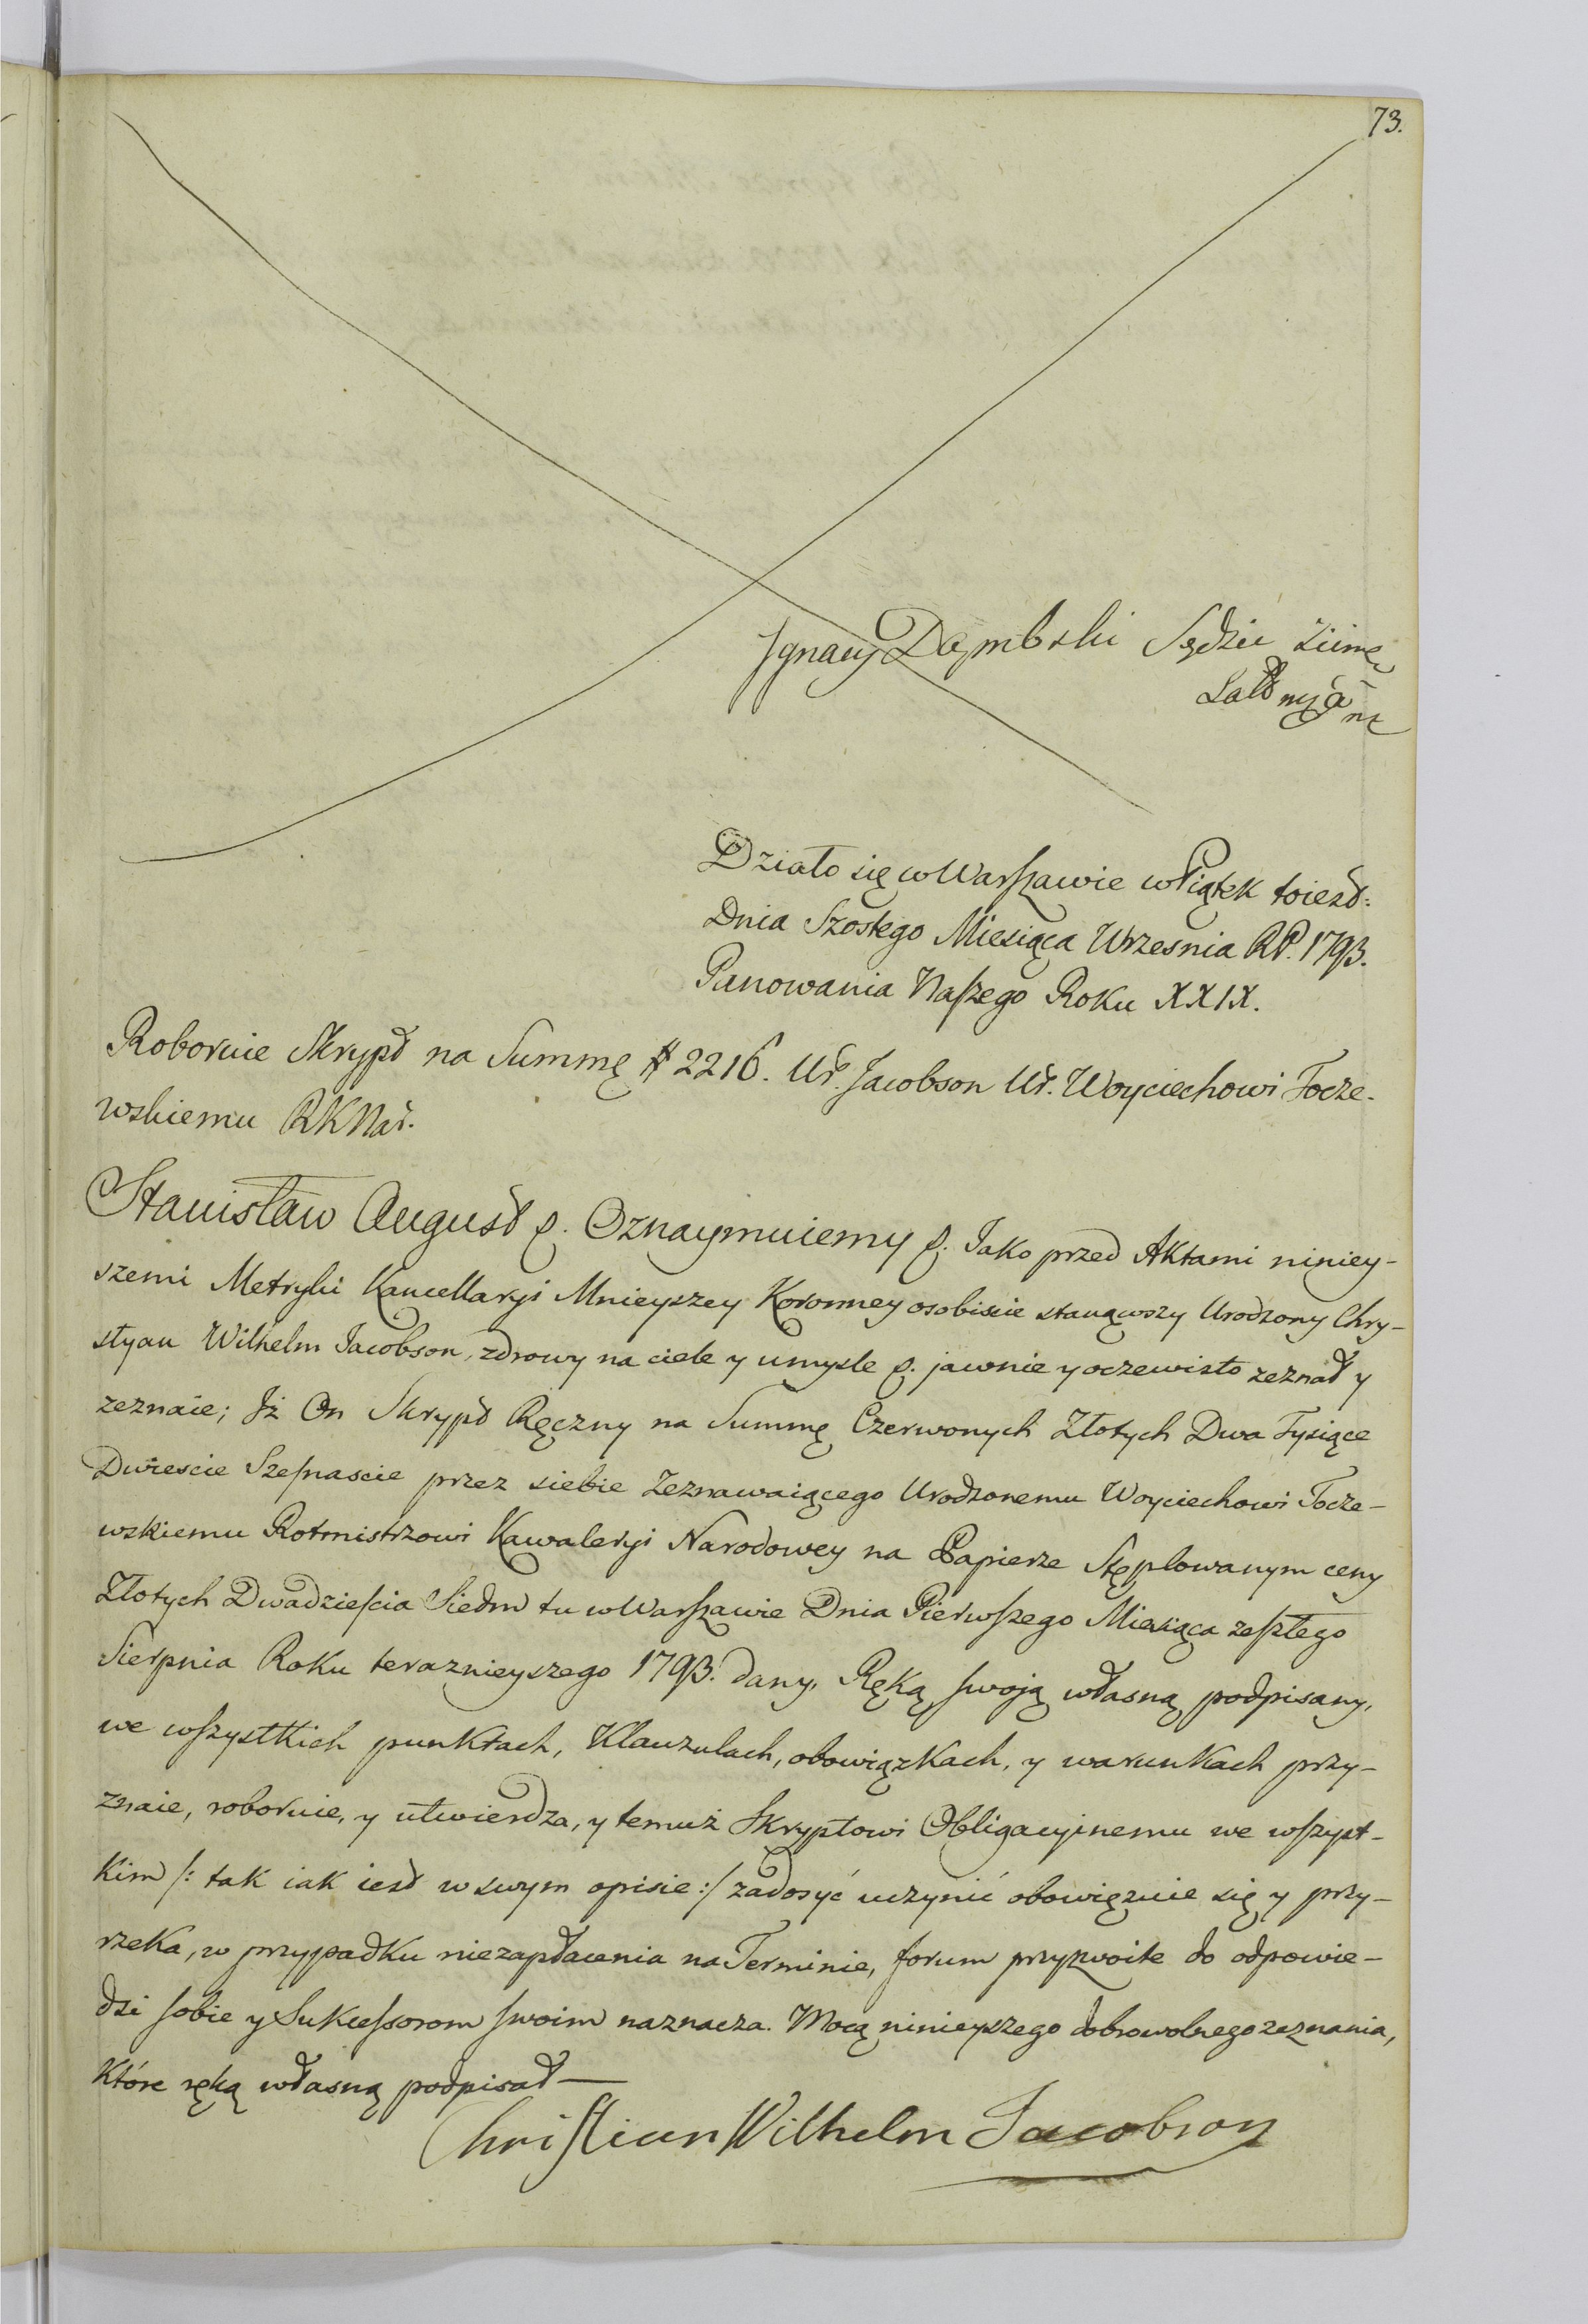 73.
Ignacy Dąmbski Sędzia
Działo się w Warszawie w Piątek toiest:
Dnia Szostego Miesiąca Wrzesnia RP. 1793.
Panowania Naszego Roku XXIX.
Roboruie Skrypt na Summę # 2216. Ur. Jacobson Ur. Woyciechowi Tocze-
wskiemu RKNar.
Stanisław August &. Oznaymuiemy &. Jako przed Aktami niniey-
szemi Metryki Kancellaryi Mnieyszey Koronney osobiscie stanąwszy Urodzony Chry-
styan Wilhelm Jacobson, zdrowy na ciele y umysle &. jawnie y oczewisto zeznał y
zeznaie; Iż On Skrypt Ręczny na Summę Czerwonych Złotych Dwa Tysiące
Dwiescie Szesnascie przez siebie Zeznawaiącego Urodzonemu Woyciechowi Tocze-
wskiemu Rotmistrzowi Kawaleryi Narodowey na Papierze Stęplowanym ceny
Złotych Dwadziescia Siedm tu w Warszawie Dnia Pierwszego Miesiąca zeszłego
Sierpnia Roku teraznieyszego 1793. dany, Ręką swoją własną podpisany,
we wszystkich punktach, Klauzulach, obowiązkach, y warunkach przy-
znaie, roboruie, y utwierdza, y temuż Skryptowi Obligacyinemu we wszyst-
kim /: tak iak iest w swym opisie :/ zadosyć uczynić obowięzuie się y przy-
rzeka, w przypadku niezapłacenia na Terminie, forum przyzwoite do odpowie-
dzi sobie y Sukcessorom swoim naznacza. Mocą ninieyszego dobrowolnego zeznania,
które ręką własną podpisał —
Christian Wilhelm Jacobson